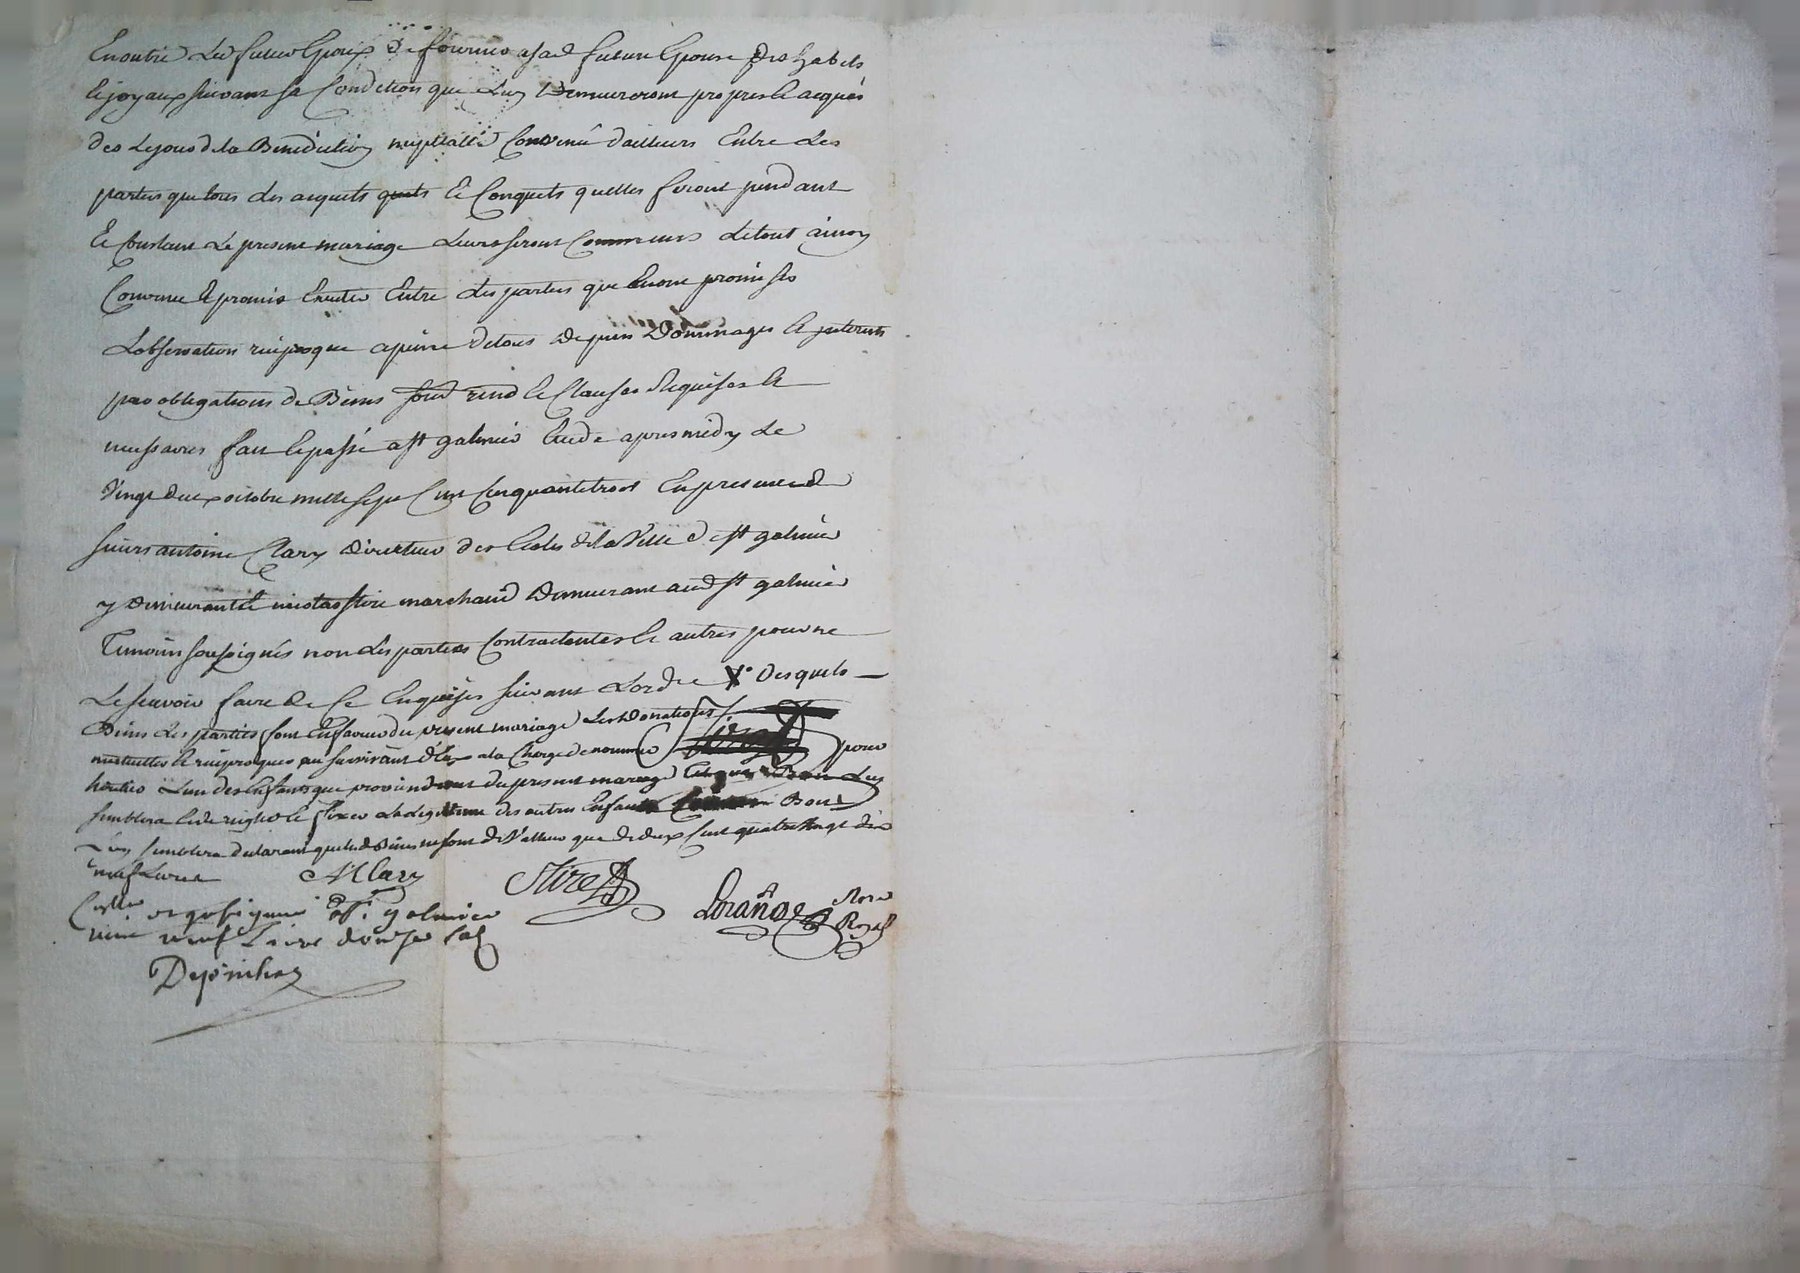 En outre Led futur Epoux de fournir a sad future Epouse des habits
et joyaux suivant sa Condition que Luy Demeureront propres et acquis
des Lejour de la Benediction nuptialle Convenu d'ailleurs Entre Les
parties que tous Les acquets quets et Conquets quelles feront pendant
Et Constant Le present mariage Leurs seront Communs detout ainsy
Convenu et promis Entre Les parties que Enont promises
Lobservation reciproque apeine detous Depens Dommages et interests
par obligations de Biens soud rend et Clauses Requises et
necessaires fait et passé a St galmier Etude apres midy Le
Vingt deux octobre mille sept Cent Cinquante trois En presence de
sieurs antoine Clary Directeur des de la Ville de St galmier
y Demeurant et nicolas Stire marchand Demeurant aud St galmier
Temoins soussignés non Les parties Contractentes et autres pour ne
Le scavoir faire de Ce Enquises suivant Lordre Desquels
Biens Les parties font En faveur du present mariage Les Donations
mutuelles et reciproques au survivant a la Charge de nommer pour
heritier Lun des Enfants que proviendront du present mariage Luy
semblera et de regler et fixer La Legitime des autres Enfants Bon
Luy semblera declarant que Led Biens ne sont de Valleur que de deux Cent quatre Vingt dix
neuf Livres AClary Stire Lorange
St. galmier
neuf Livre douze sol
Depinhac